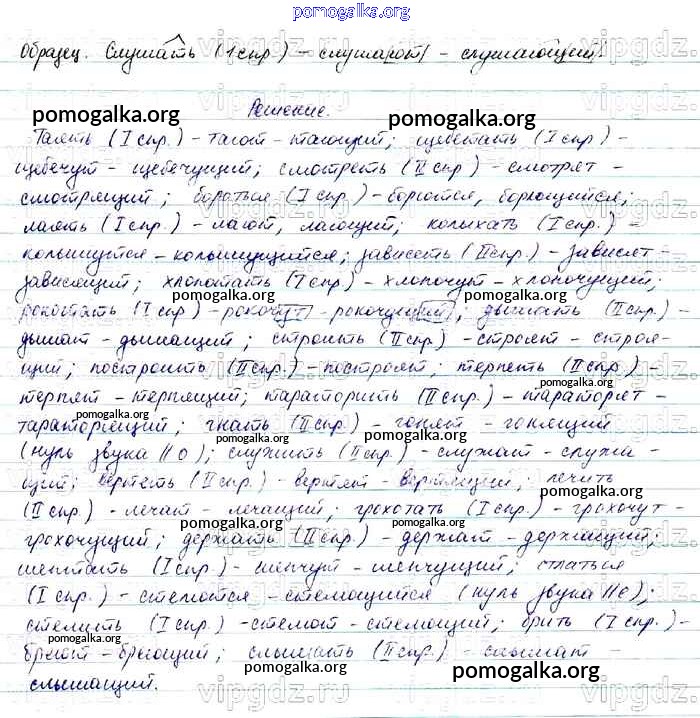 pomogalka.org
Образец. Слушать (1 спр.) – слушают – слушающий.
Решение.
Таять (I спр.) – тают – тающий; щебетать (I спр.) –
щебечут – щебечущий; смотреть (II спр.) – смотрят –
смотрящий; бороться (I спр.) – борются, борющийся;
лаять (I спр.) – лают, лающий; колыхать (I спр.) –
колышутся – колышущийся; зависеть (II спр.) – зависят
зависящий; хлопотать (I спр) – хлопочут – хлопочущий;
рокотать (I спр) – рокочут – рокочущий; дышать (II спр.) –
дышат – дышащий; строить (II спр.) – строят – строя-
щий; построить (II спр.) – построят; терпеть (II спр) –
терпят – терпящий; тараторить (II спр.) – тараторят –
тараторящий; гнать (II спр.) – гонят – гонящий
(нуль звука // о); служить (II спр.) – служат – служа-
щий; вертеть (II спр.) – вертят – вертящий; лечить
(II спр.) – лечат – лечащий; грохотать (I спр.) – грохочут –
грохочущий; держать (II спр.) – держат – держащий;
шептать (I спр.) – шепчут – шепчущий; стлаться
(I спр.) – стелются – стелющийся (нуль звука // е);
стелить (I спр.) – стелют – стелющий; брить (I спр.) –
бреют – бреющий; слышать (II спр.) – слышат –
слышащий.